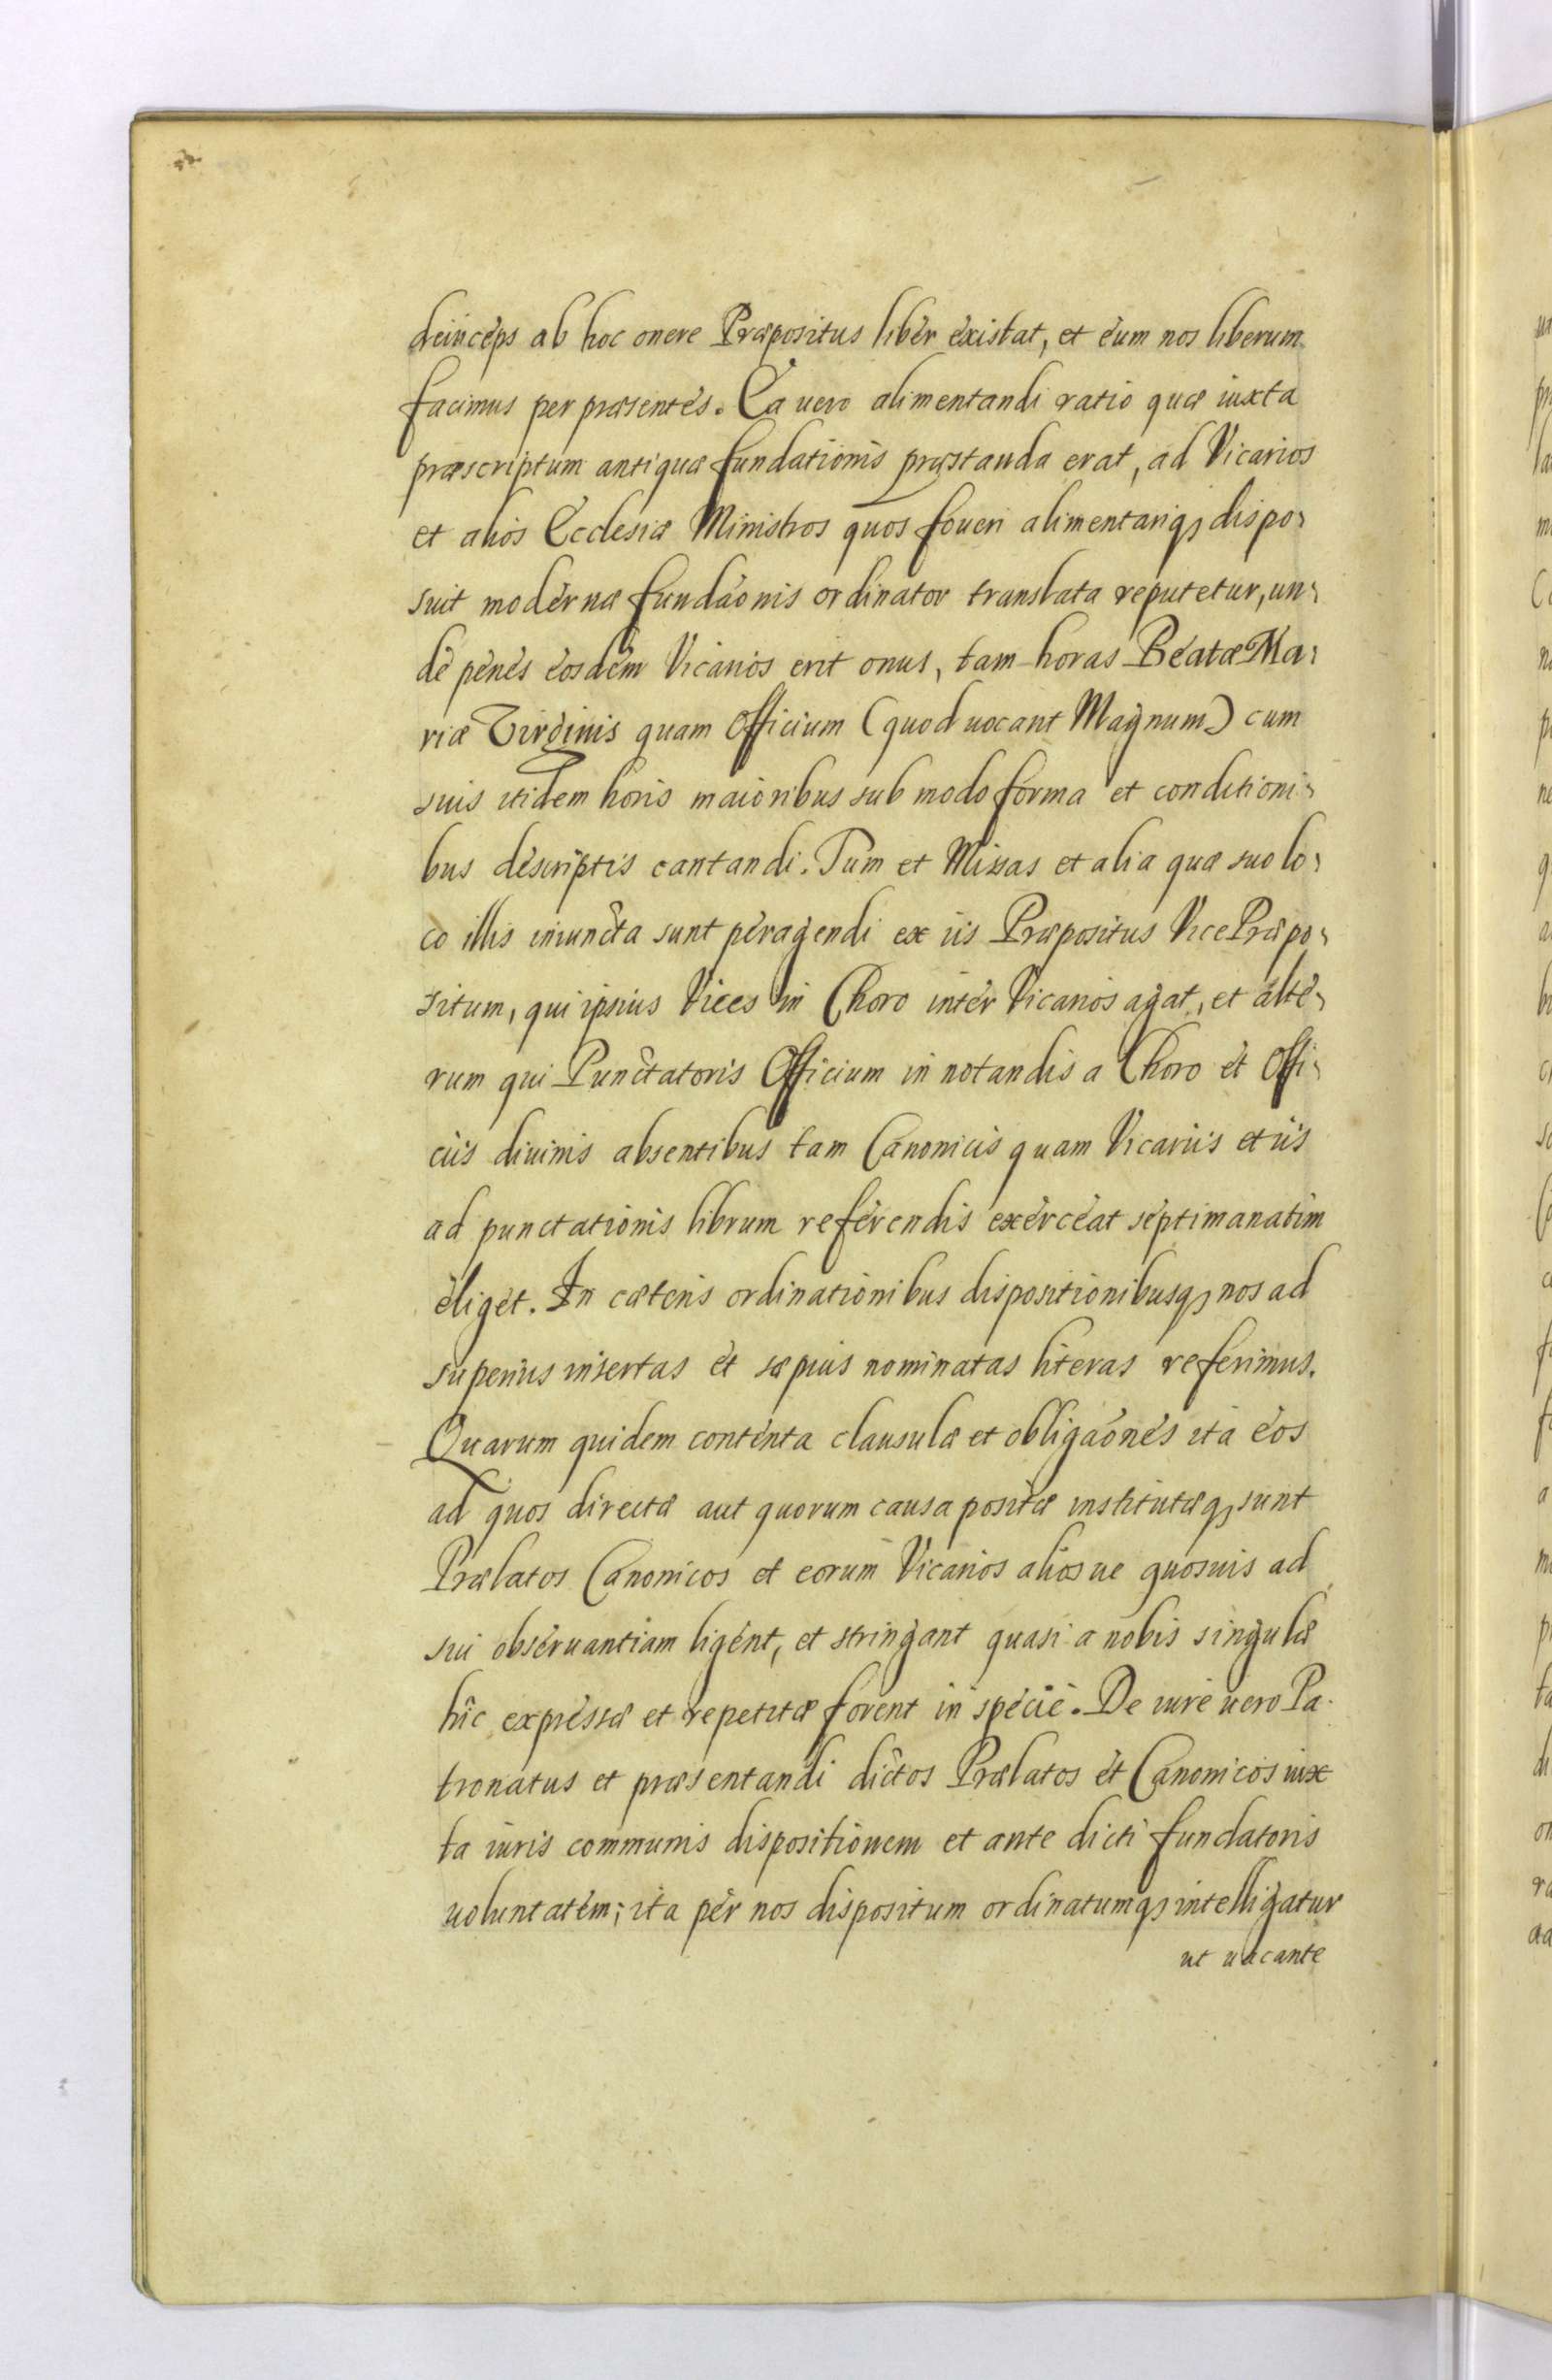 deinceps ab hoc onere Præpositus liber existat, et eum nos liberum
facimus per præsentes. Ea uero alimentandi ratio quæ iuxta
præscriptum antiquæ fundationis præstanda erat, ad Vicarios
et alios Ecclesiæ Ministros quos foueri alimentariq3 dispo-
suit modernæ fundaõnis ordinator translata reputetur, un-
de penes eosdem Vicarios erit onus, tam horas Beatæ Ma-
riæ Virginis quam Officium (quod uocant Magnum) cum
suis itidem horis maioribus sub modo forma et conditioni-
bus descriptis cantandi. Tum et Missas et alia quæ suo lo-
co illis iniuncta sunt peragendi ex iis Præpositus VicePræpo-
situm, qui ipsius Vices in Choro inter Vicarios agat, et alte-
rum qui Punctatoris Officium in notandis a Choro et Offi-
ciis diuinis absentibus tam Canonicis quam Vicariis et iis
ad punctationis librum referendis exerceat septimanatim
eliget. In cæteris ordinationibus dispositionibusq3 nos ad
superius insertas et sæpius nominatas literas referimus.
Quarum quidem contenta clausulæ et obligaõnes ita eos
ad quos directæ aut quorum causa positæ institutæq3 sunt
Prælatos Canonicos et eorum Vicarios aliosue quosuis ad
sui obseruantiam ligent, et stringant quasi a nobis singulæ
hîc expressæ et repetitæ forent in specie. De iure uero Pa-
tronatus et præsentandi dictos Prælatos et Canonicos iux
ta iuris communis dispositionem et ante dicti fundatoris
uoluntatem; ita per nos dispositum ordinatumq3 intelligatur
ut uacante